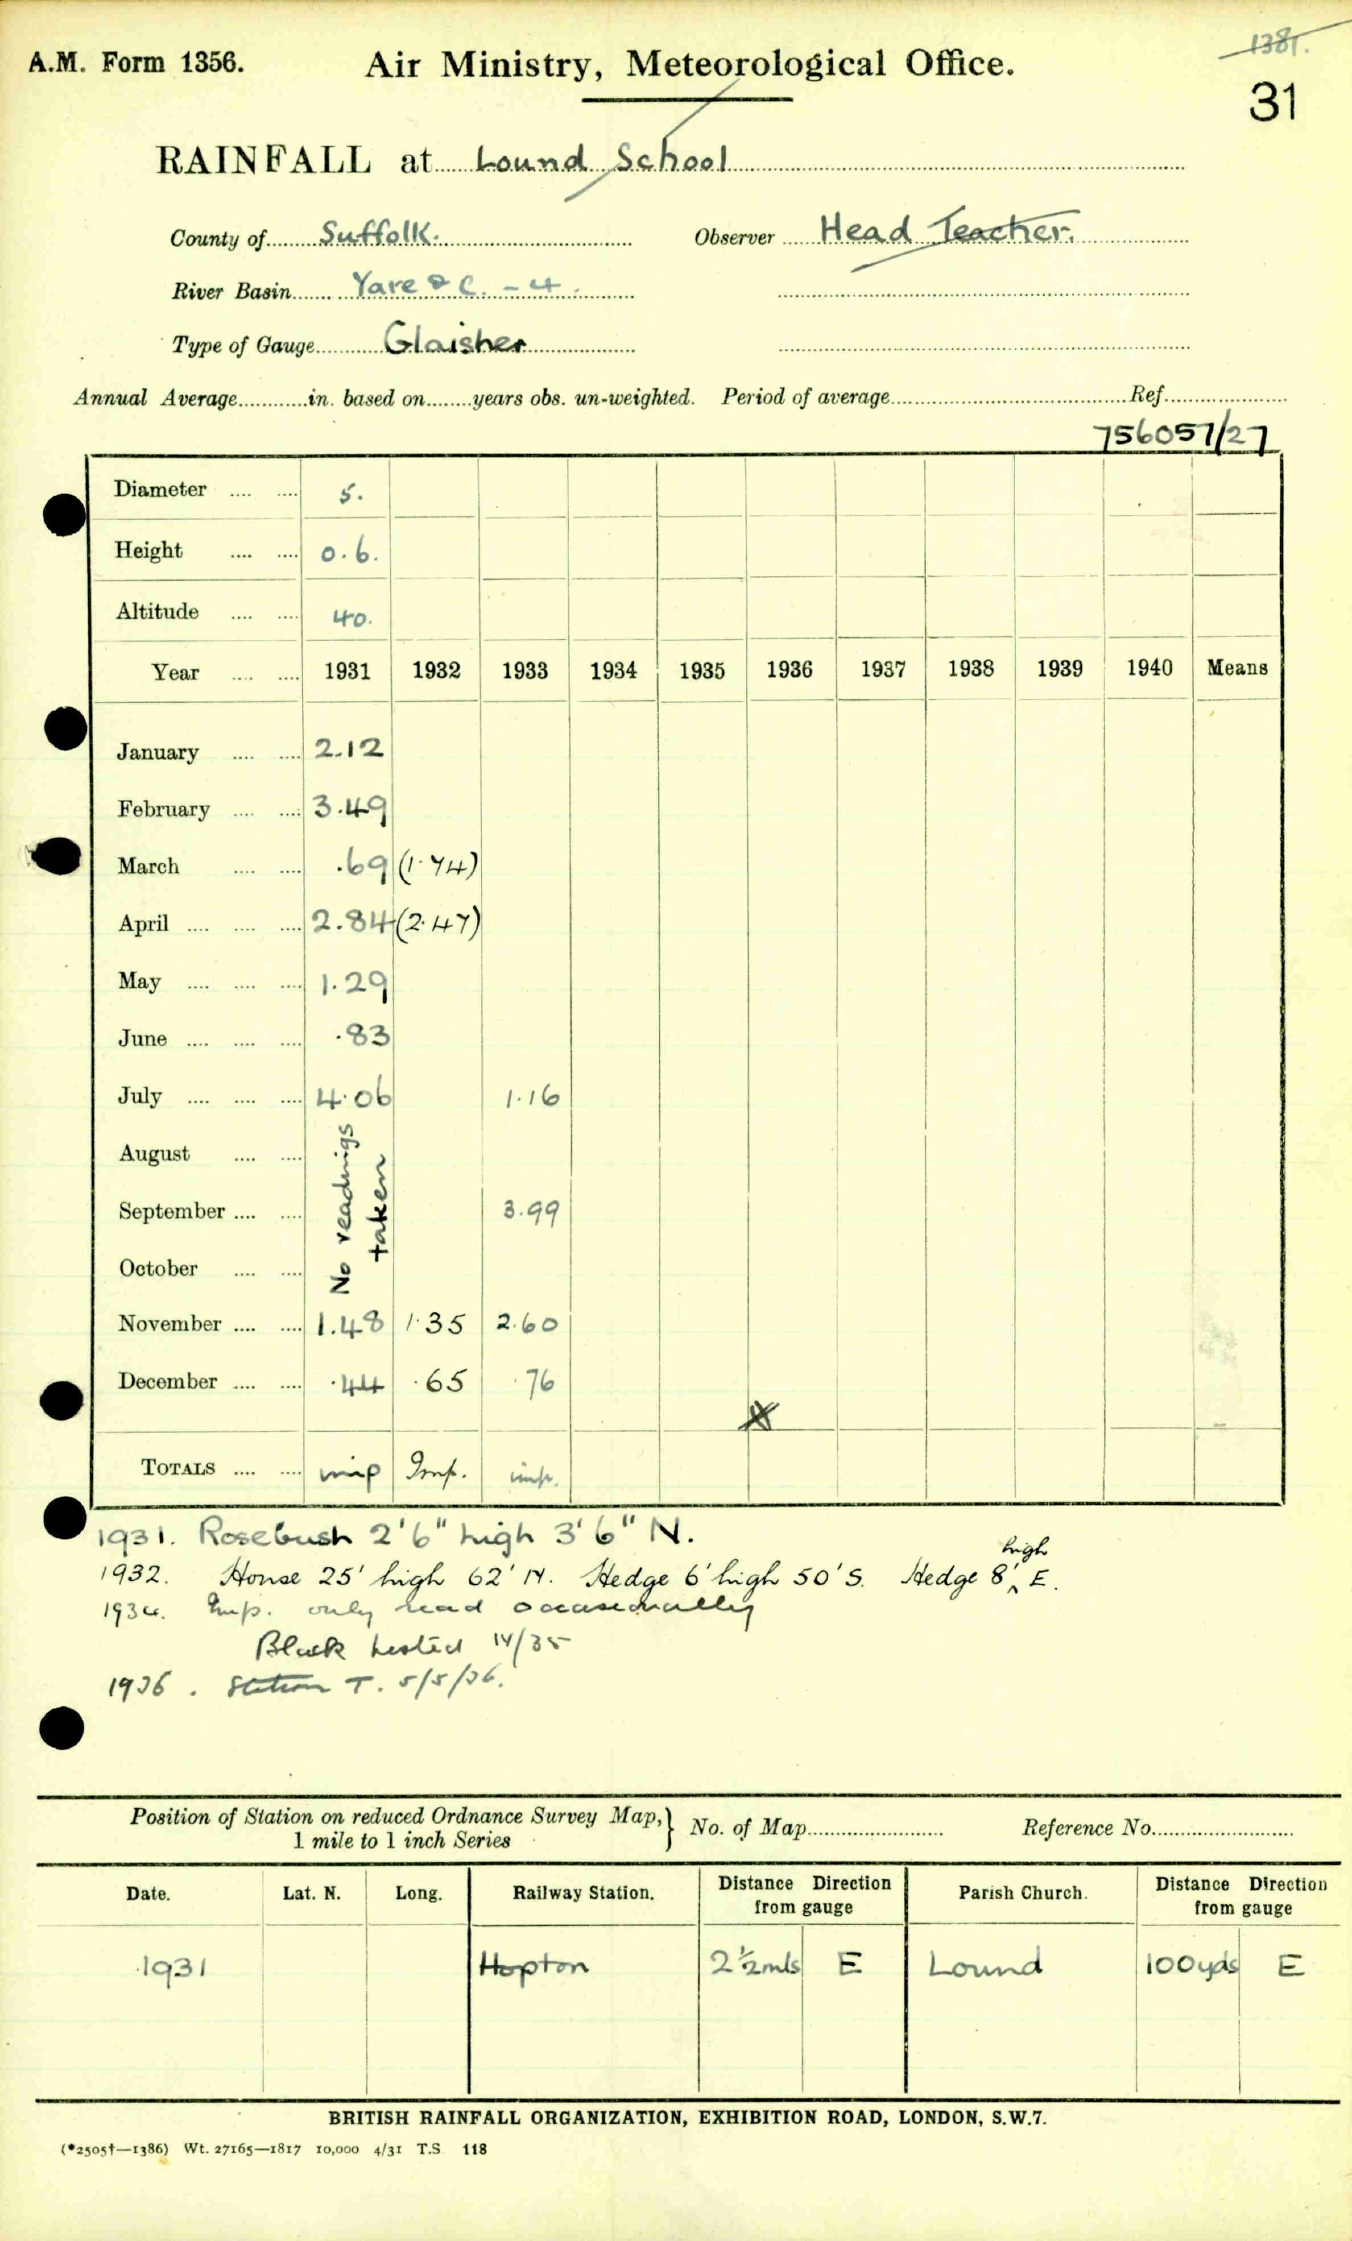 1381.
A.M. Form 1356. Air Ministry, Meteorological Office.
31
RAINFALL at Lound School
County of Suffolk. Observer Head Teacher.
River Basin Yare &c. - 4.
Type of Gauge Glaisher
Annual Average in. based on years obs. un-weighted. Period of average Ref.
756057/27
Diameter 5.
Height 0.6.
Altitude 40.
Year 1931 1932 1933 1934 1935 1936 1937 1938 1939 1940 Means
January 2.12
February 3.49
March .69 (1.74)
April 2.84 (2.47)
May 1.29
June .83
July 4.06 1.16
August
September 3.99
October
No readings
taken
November 1.48 1.35 2.60
December .44 .65 .76
TOTALS imp Imp. imp.
1931. Rosebush 2'6" high 3'6" N.
high
1932. House 25' high 62' N. Hedge 6' high 50' S. Hedge 8' ^ E.
1934. Imp. only read occasionally
Black Listed 14/35
1936. Station T. 5/5/36.
Position of Station on reduced Ordnance Survey Map, } No. of Map Reference No.
1 mile to 1 inch Series
Date. Lat. N. Long. Railway Station. Distance Direction from gauge Parish Church. Distance Direction from gauge
1931 Hopton 2½mls E Lound 100yds E
BRITISH RAINFALL ORGANIZATION, EXHIBITION ROAD, LONDON, S.W.7.
(*2505†—1386) Wt. 27165—1817 10,000 4/31 T.S. 118